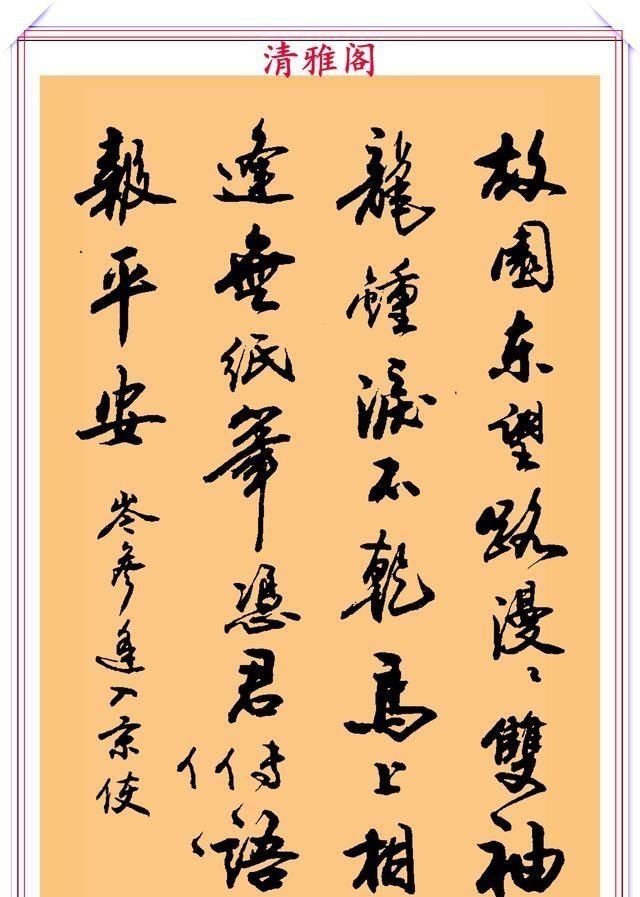 清雅阁
故園东望路漫〻雙袖
龍鍾淚不乾馬上相
逢無紙筆憑君傳語
報平安
岑參逢入京使